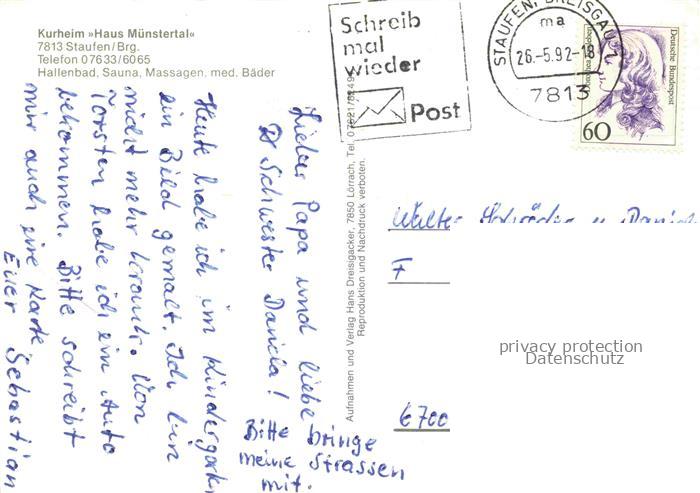 Kurheim »Haus Münstertal«
7813 Staufen/Brg.
Telefon 07633/6065
Hallenbad, Sauna, Massagen, med. Bäder
Schreib
mal
wieder
Post
STAUFEN, BREISGAU
ma
26.-5.92-18
7813
Deutsche Bundespost
60
Lieber Papa und liebe
Schwester Daniela!
Heute habe ich im Kindergarten
ein Bild gemalt. Ich bin
nicht mehr krank. Von
Torsten habe ich ein Auto
bekommen. Bitte schreibt
mir auch eine Karte
Euer Sebastian
Bitte bringe
meine Strassen
mit.
Aufnahmen und Verlag Hans Dreisigacker, 7850 Lörrach, Tel.
Reproduktion und Nachdruck verboten.
Walter Schröder u. Daniela
F
6700
privacy protection
Datenschutz